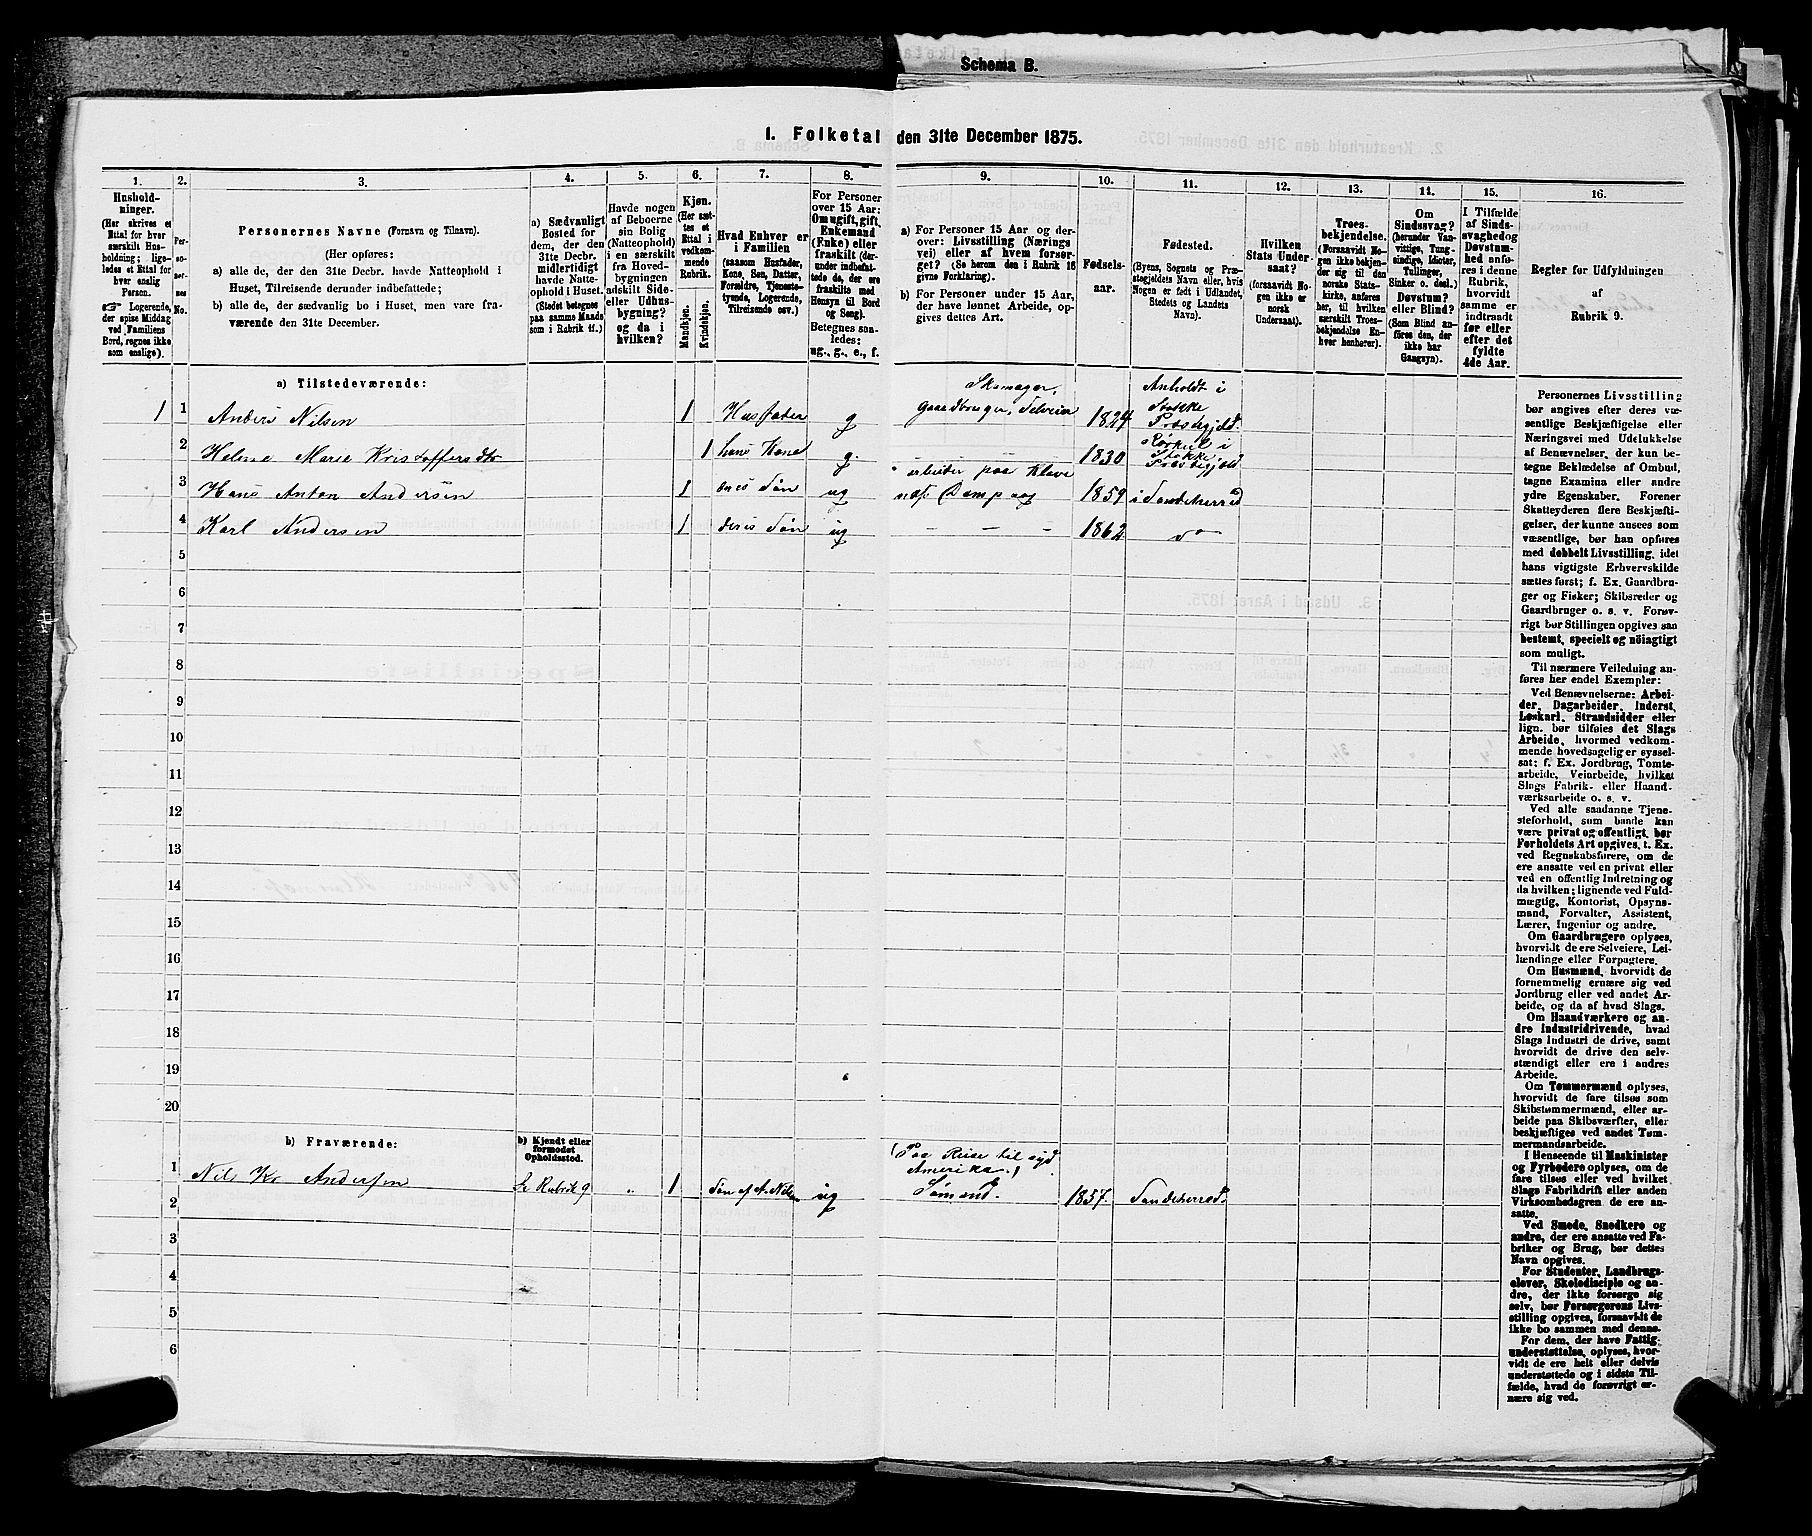 Schema B.
1. Folketal den 31te December 1875.
1. 2. 3. 4. 5. 6. 7. 8. 9. 10. 11. 12. 13. 14. 15. 16.
Husholdninger.
(Her skrives et Ettal for hver særskilt Husholdning; ligeledes et Ettal for hver enslig Person.
☞ Logerende, der spise Middag ved Familiens Bord, regnes ikke som enslige).
Personernes No.
Personernes Navne (Fornavn og Tilnavn).
(Her opføres:
a) alle de, der den 31te Decbr. havde Natteophold i Huset, Tilreisende derunder indbefattede;
b) alle de, der sædvanlig bo i Huset, men vare fraværende den 31te December.
a) Sædvanligt Bosted for dem, der den 31te Decbr. midlertidigt havde Natteophold i Huset. (Stedet betegnes paa samme Maade som i Rubrik 11.)
Havde nogen af Beboerne sin Bolig (Natteophold) i en særskilt fra Hovedbygningen adskilt Side- eller Udhusbygning? og da i hvilken?
Kjøn.
(Her sættes et Ettal i vedkommende Rubrik.
Mandkjøn.
Kvindekjøn.
Hvad Enhver er i Familien
(saasom Husfader, Kone, Søn, Datter, Forældre, Tjenestetyende, Logerende, Tilreisende osv.)
For Personer over 15 Aar: Om ugift, gift, Enkemand (Enke) eller fraskilt (derunder indbefattede de, der ere fraskilte med Hensyn til Bord og Seng).
Betegnes saaledes:
ug., g., e., f.
a) For Personer 15 Aar og derover: Livsstilling (Næringsvei) eller af hvem forsørget? (Se herom den i Rubrik 16 givne Forklaring).
b) For Personer under 15 Aar, der have lønnet Arbeide, opgives dettes Art.
Fødselsaar.
Fødested.
(Byens, Sognets og Præstegjeldets Navn eller, hvis Nogen er født i Udlandet, Stedets og Landets Navn).
Hvilken Stats Undersaat?
(forsaavidt Nogen ikke er norsk Undersaat).
Troesbekjendelse.
(Forsaavidt Nogen ikke bekjender sig til den norske Statskirke, anføres her, til hvilken særskilt Troesbekjendelse Enhver henhører).
Om Sindssvag? (herunder Vanvittige, Tungsindige, Idioter, Tullinger, Sinker o. desl.) Døvstum? eller Blind?
(Som Blind anføres den, der ikke har Gangsyn).
I Tilfælde af Sindssvaghed og Døvstumhed anføres i denne Rubrik, hvorvidt samme er indtraadt før eller efter det fyldte 4de Aar.
Regler for Udfyldningen
af
Rubrik 9.
a) Tilstedeværende:
1 1 Anders Nilsen 1 Husfader g Skomager, Gaardbruger, Selveier 1824 Anholdt i Stokke Præstegjeld
2 Helene Marie Kristoffersdtr 1 hans Kone g. — — — 1830 i Stokke Præstegjeld
3 Hans Anton Andersen 1 deres Søn ug arbeider paa Klavenæs Dampsag 1859 i Sandeherred
4 Karl Andersen 1 deres Søn ug — — — 1862 do
5
6
7
8
9
10
11
12
13
14
15
16
17
18
19
20
b) Fraværende:
b) Kjendt eller formodet Opholdssted.
1 Nils Kr Andersen Se Rubrik 9 „ 1 Søn af A. Nilsen ug (Paa Reise til syd Amerika.) Sømand. 1857. Sandeherred.
2
3
4
5
6
Personernes Livsstilling
bør angives efter deres væ-
sentlige Beskjæftigelse eller
Næringsvei med Udelukkelse
af Benævnelser, der kun be-
tegne Beklædelse af Ombud,
tagne Examina eller andre
ydre Egenskaber. Forener
Skatteyderen flere Beskjæfti-
gelser, der kunne ansees som
væsentlige, bør han opføres
med dobbelt Livsstilling, idet
hans vigtigste Erhvervskilde
sættes først; f. Ex. Gaardbru-
ger og Fisker; Skibsreder og
Gaardbruger o. s. v. Forøv-
rigt bør Stillingen opgives saa
bestemt, specielt og nöiagtigt
som muligt.
Til nærmere Veiledning an-
føres her endel Exempler:
Ved Benævnelserne: Arbei-
der, Dagarbeider, Inderst,
Løskarl, Strandsidder eller
lign. bør tilføies det Slags
Arbeide, hvormed vedkom-
mende hovedsagelig er syssel-
sat; f. Ex. Jordbrug, Tomte-
arbeide, Veiarbeide, hvilket
Slags Fabrik- eller Haand-
værksarbeide o. s. v.
Ved alle saadanne Tjene-
steforhold, som baade kan
være privat og offentligt, bør
Forholdets Art opgives, t. Ex.
ved Regnskabsførere, om de
ere ansatte ved en privat eller
ved en offentlig Indretning og
da hvilken; lignende ved Fuld-
mægtig, Kontorist, Opsyns-
mand, Forvalter, Assistent,
Lærer, Ingeniør og andre.
Om Gaardbrugere oplyses,
hvorvidt de ere Selveiere, Lei-
lændinge eller Forpagtere.
Om Husmænd, hvorvidt de
fornemmelig ernære sig ved
Jordbrug eller ved andet Ar-
beide, og da af hvad Slags.
Om Haandværkere og an-
dre Industridrivende, hvad
Slags Industri de drive, samt
hvorvidt de drive den selv-
stændigt eller ere i andres
Arbeide.
Om Tømmermænd oplyses,
hvorvidt de fare tilsøs som
Skibstømmermænd, eller ar-
beide paa Skibsværfter, eller
beskjæftiges ved andet Tøm-
mermandsarbeide.
I Henseende til Maskinister
og Fyrbødere oplyses, om de
fare tilsøs eller ved hvilket
Slags Fabrikdrift eller anden
Virksomhedsgren de ere an-
satte.
Ved Smede, Snedkere og
andre, der ere ansatte ved Fa-
briker og Brug, bør dettes
Navn opgives.
For Studenter, Landbrugs-
elever, Skoledisciple og an-
dre, der ikke forsørge sig
selv, bør Forsørgerens Livs-
stilling opgives, forsaavidt de
ikke bo sammen med denne.
For dem, der have Fattig-
understøttelse, oplyses, hvor-
vidt de ere helt eller delvis
understøttede og i sidste Til-
fælde, hvad de forøvrigt er-
nære sig ved.